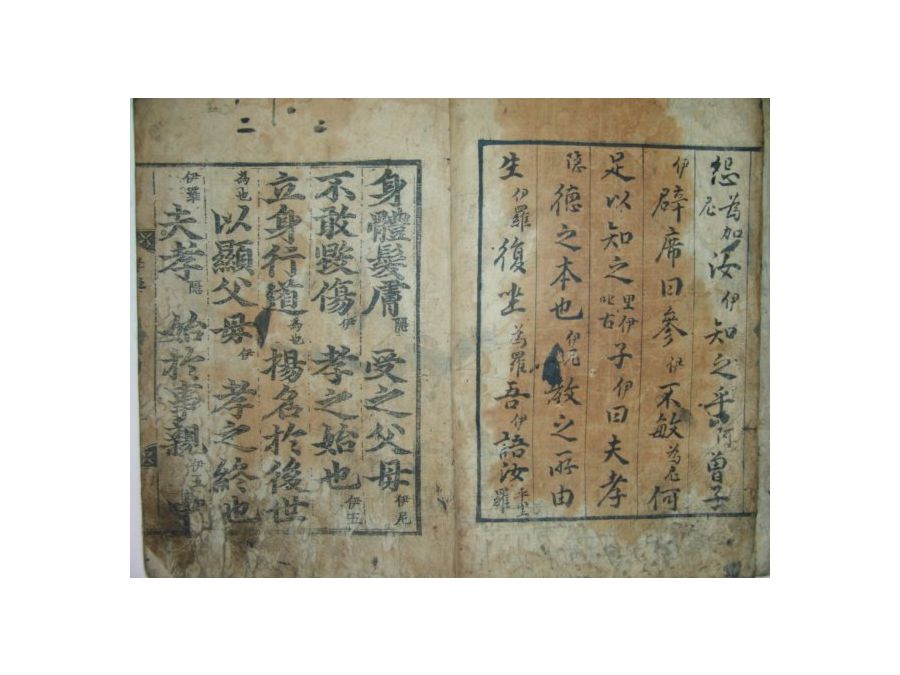 怨為加尼汝伊知之乎阿曾子
伊辟席曰參伊不敏為尼何
足以知之里伊叱古子伊曰夫孝
隱德之本也伊尼教之所由
生伊羅復坐為羅吾伊語汝
身體髮膚隱受之父母伊尼
不敢毀傷伊孝之始也伊五
立身行道為也揚名於後世
為也以顯父母伊孝之終也
伊羅夫孝隱始於事親伊五
二